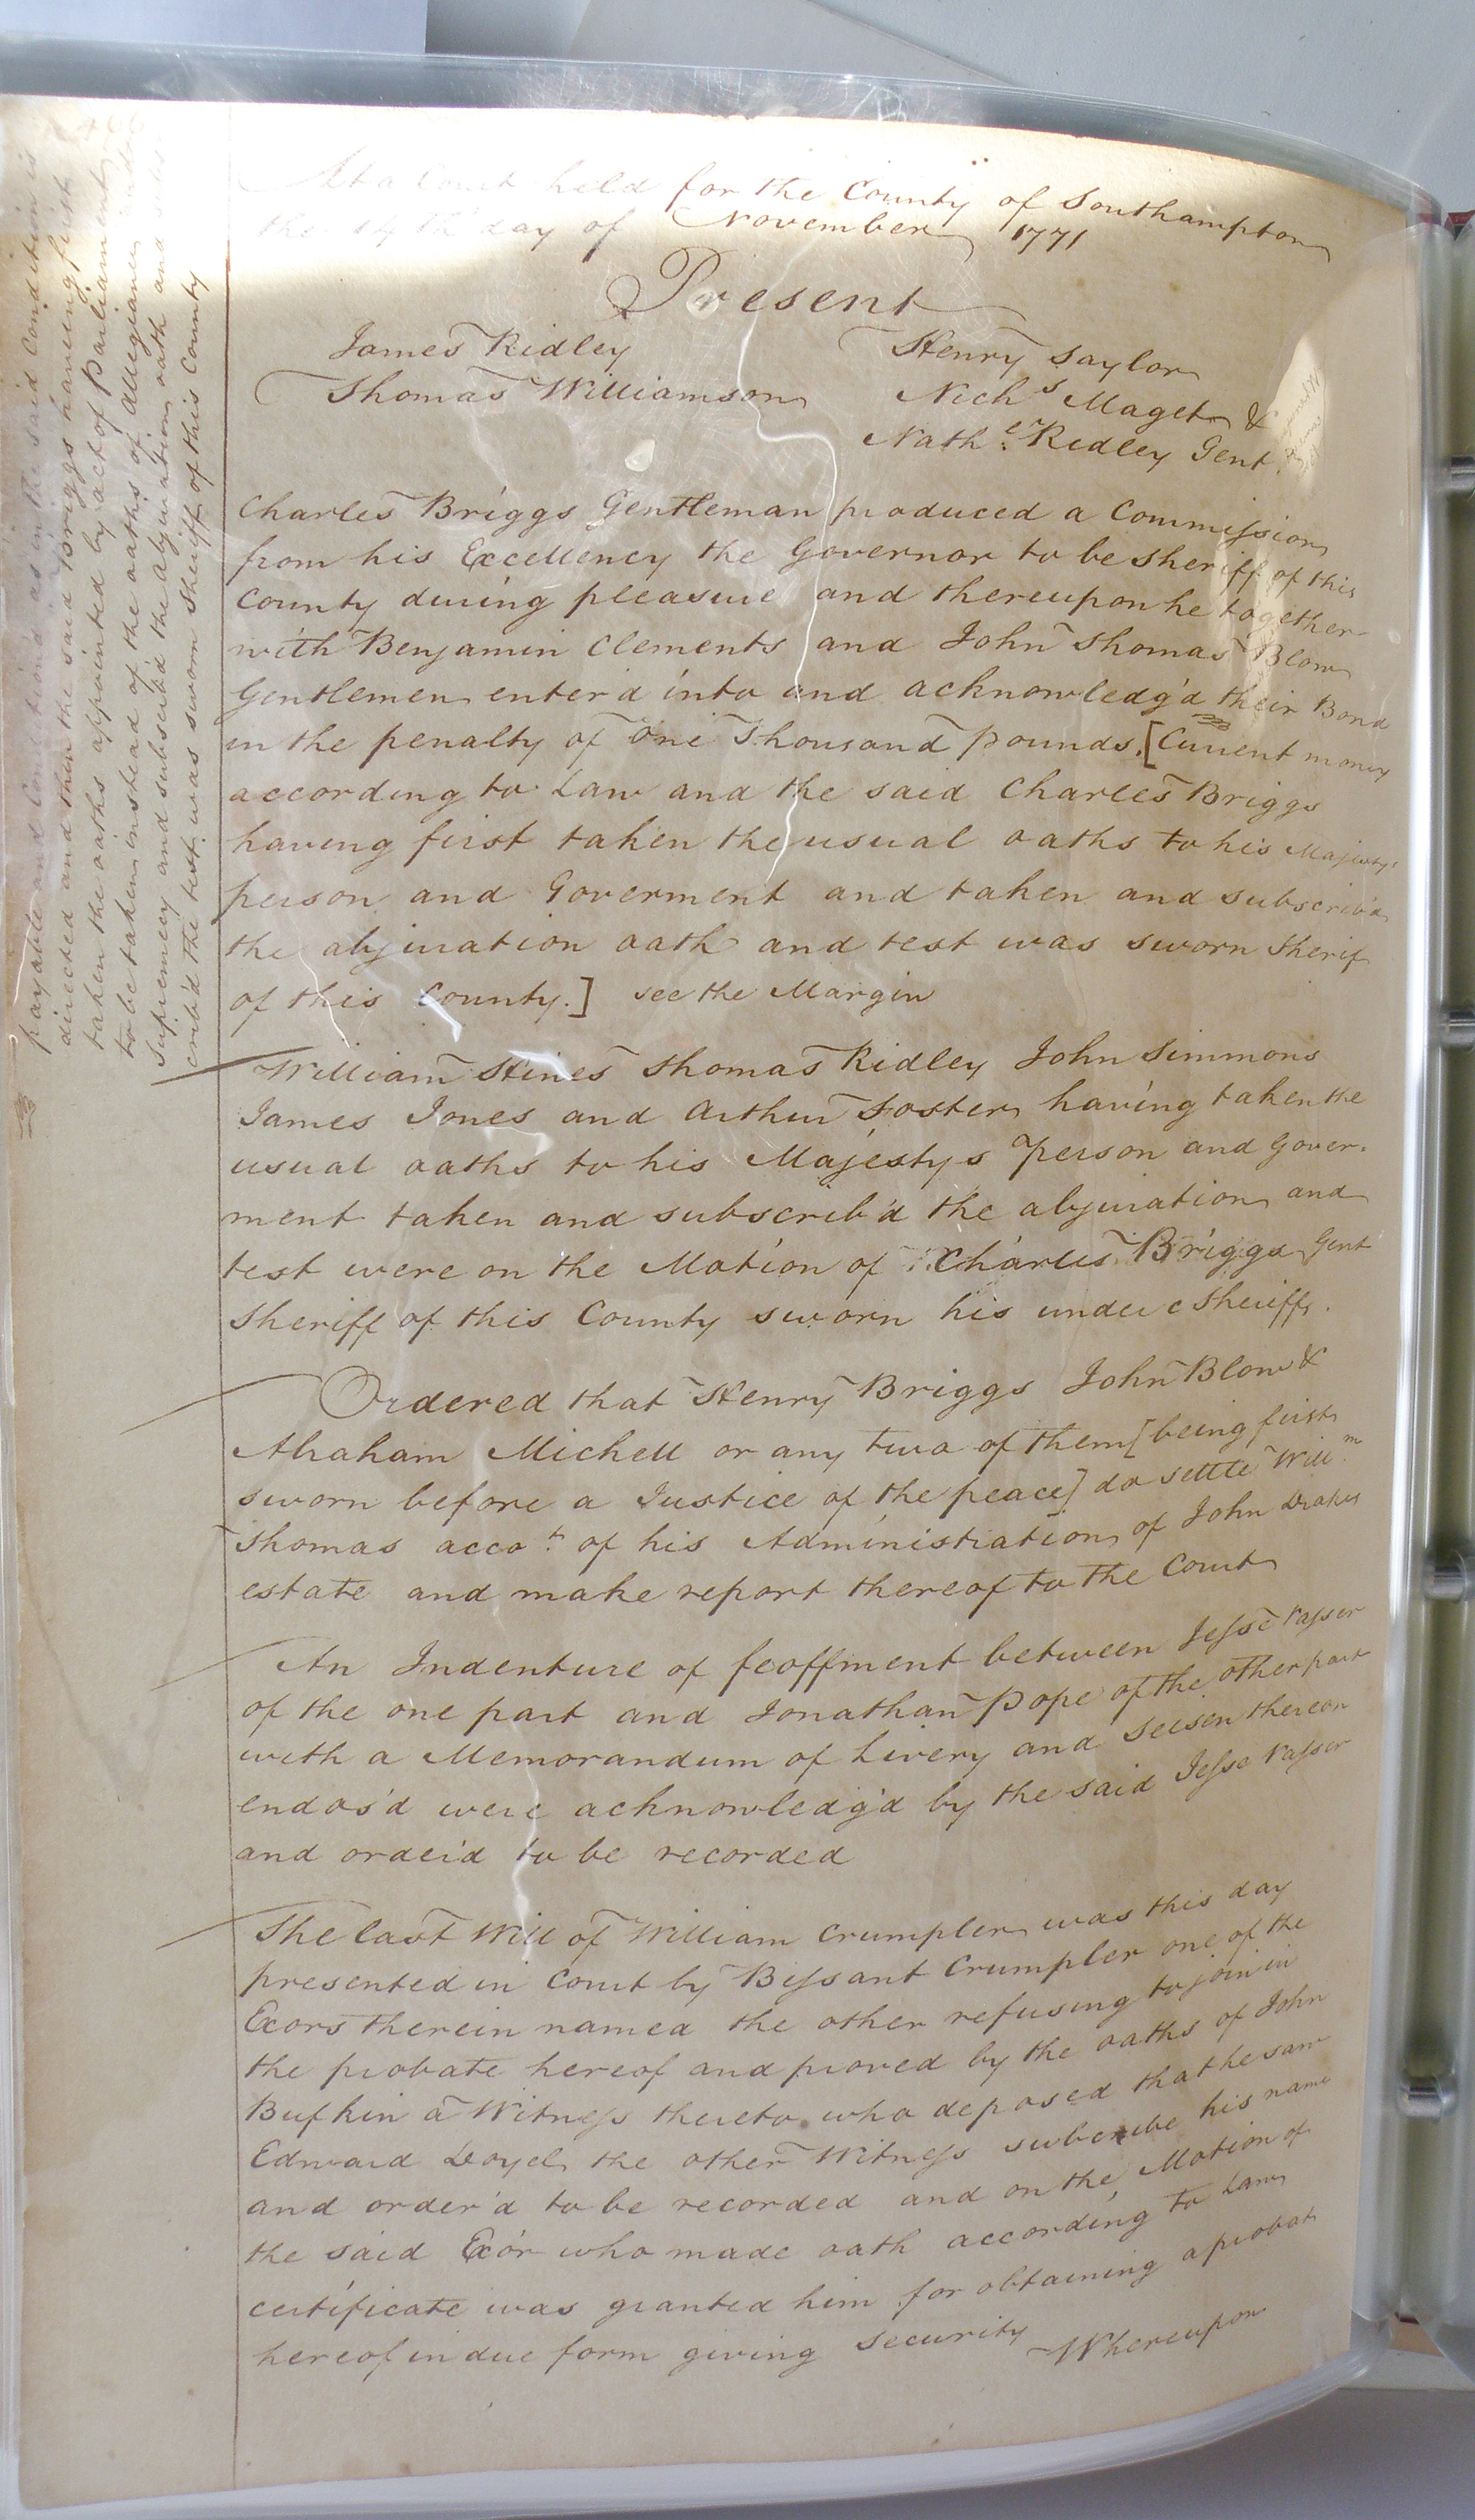 At a Court held for the County of Southampton
the 14th day of November 1771
Present
James Ridley
Thomas Williamson
Henry Taylor
Nichs Maget &
Nathl Ridley Gent.
Charles Briggs Gentleman produced a Commission
from his Excellency the Governor to be Sheriff of this
County during pleasure and thereupon he together
with Benjamin Clements and John Thomas Blow
Gentlemen enter'd into and acknowledg'd their Bond
in the penalty of One Thousand pounds. [Current money
according to Law and the said Charles Briggs
having first taken the usual oaths to his Majestys
person and Goverment and taken and subscrib'd
the abjuration oath and test was sworn Sherif
of this County.] see the Margin
payable and Condition'd as in the said Condition is
directed and then the said Briggs having first
taken the oaths appointed by act of Parliament
to be taken instead of the oaths of allegiance and
Supremecy and subscrib'd the abjuration oath and
crib'd the test was sworn Sheriff of this County
William Hines Thomas Ridley John Simmons
James Jones and Arthur Foster having taken the
usual oaths to his Majestys person and Gover-
ment taken and subscrib'd the abjuration and
test were on the Motion of Charles Briggs Gent
Sheriff of this County sworn his under Sheriffs.
Ordered that Henry Briggs John Blow &
Abraham Michell or any two of them [being first
sworn before a Justice of the peace] do settle Willm
Thomas accot. of his Administration of John Drakes
estate and make report thereof to the Court
An Indenture of feoffment between Jesse Vasser
of the one part and Jonathan Pope of the other part
with a Memorandum of Livery and Seisen thereon
endos'd were acknowledg'd by the said Jesse Vasser
and order'd to be recorded
The last Will of William Crumpler was this day
presented in Court by Bessant Crumpler one of the
Exors therein named the other refusing to join in
the probate hereof and proved by the oaths of John
Bufkin a Witness thereto who deposed that he saw
Edward Doyel the other Witness subcribe his name
and order'd to be recorded and on the Motion of
the said Exor who made oath according to Law
certificate was granted him for obtaining a probat
hereof in due form giving security
Whereupon